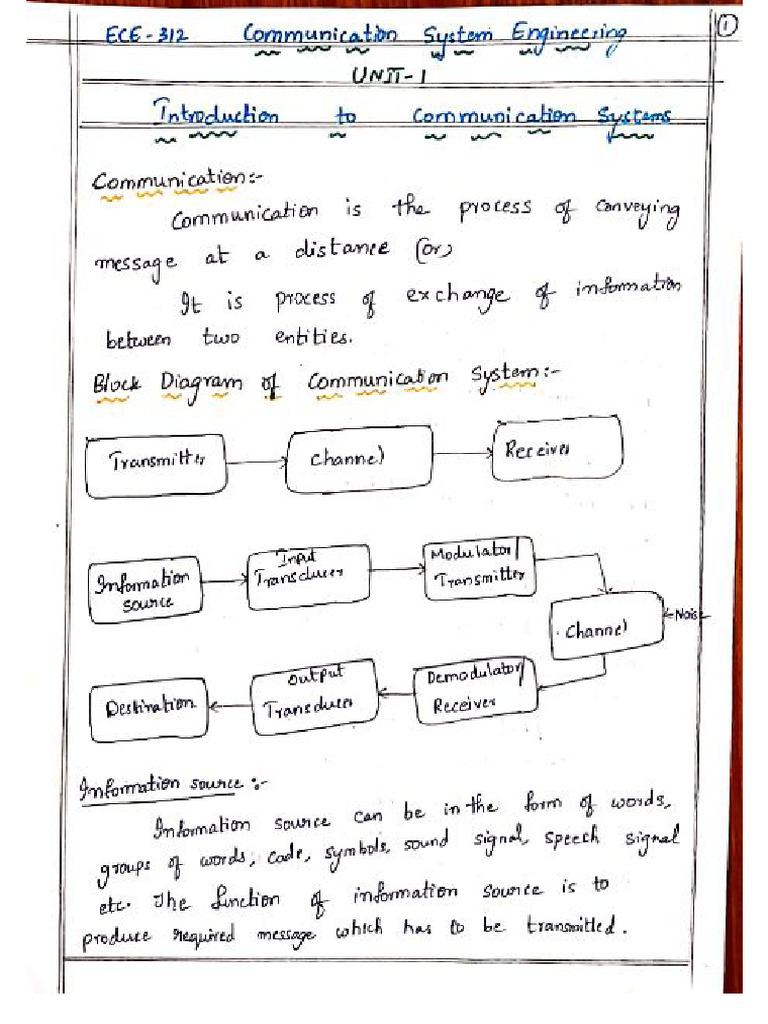 ECE-312 Communication System Engineering
1
UNIT-1
Introduction to Communication Systems
Communication:-
Communication is the process of conveying
message at a distance (or)
It is process of exchange of information
between two entities.
Block Diagram of Communication System:-
Transmitter
Channel
Receiver
Information
source
Input
Transducer
Modulator/
Transmitter
Channel
Nois
Destination
Output
Transducer
Demodulator/
Receiver
Information source :-
Information source can be in the form of words,
groups of words, code, symbols, sound signal, speech signal
etc. The function of information source is to
produce required message which has to be transmitted.